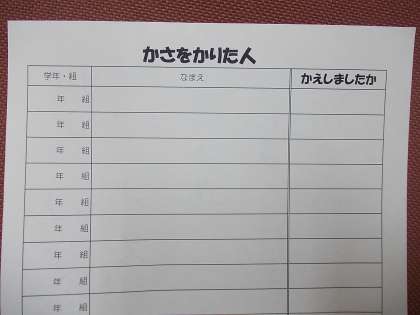 かさをかりた人
学年・組 なまえ かえしましたか
年 組
年 組
年 組
年 組
年 組
年 組
年 組
年 組
年 組